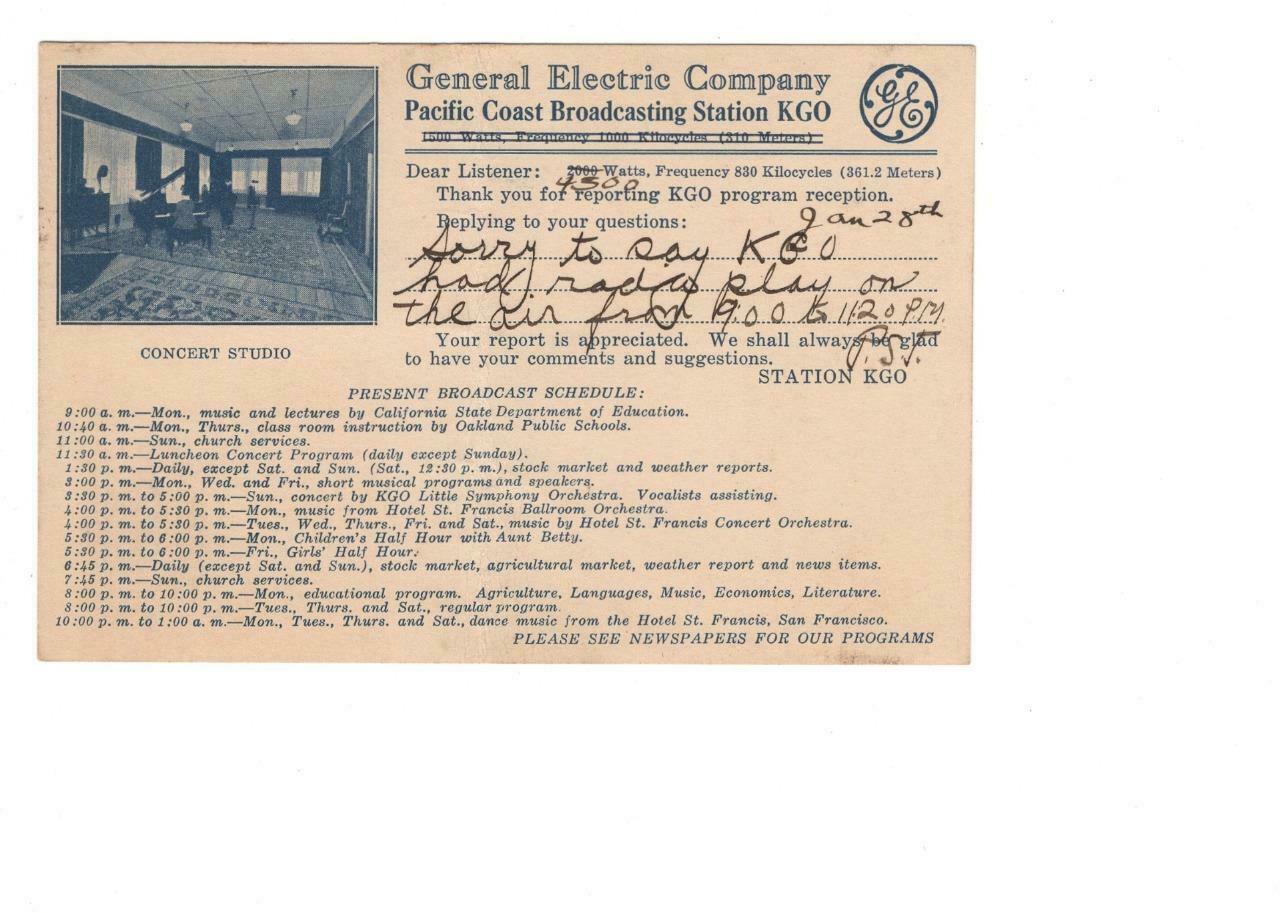 General Electric Company
Pacific Coast Broadcasting Station KGO
1500 Watts, Frequency 1000 Kilocycles (310 Meters)
GE
Dear Listener: 2000 Watts, Frequency 830 Kilocycles (361.2 Meters)
4500
Thank you for reporting KGO program reception.
Replying to your questions: Jan 28th
Sorry to say KGO
had radio play on
the air from 9:00 to 11:20 P.M.
P.S.T.
Your report is appreciated. We shall always be glad
to have your comments and suggestions.
STATION KGO
CONCERT STUDIO
PRESENT BROADCAST SCHEDULE:
9:00 a. m.—Mon., music and lectures by California State Department of Education.
10:40 a. m.—Mon., Thurs., class room instruction by Oakland Public Schools.
11:00 a. m.—Sun., church services.
11:30 a. m.—Luncheon Concert Program (daily except Sunday).
1:30 p. m.—Daily, except Sat. and Sun. (Sat., 12:30 p. m.), stock market and weather reports.
3:00 p. m.—Mon., Wed. and Fri., short musical programs and speakers.
3:30 p. m. to 5:00 p. m.—Sun., concert by KGO Little Symphony Orchestra. Vocalists assisting.
4:00 p. m. to 5:30 p. m.—Mon., music from Hotel St. Francis Ballroom Orchestra.
4:00 p. m. to 5:30 p. m.—Tues., Wed., Thurs., Fri. and Sat., music by Hotel St. Francis Concert Orchestra.
5:30 p. m. to 6:00 p. m.—Mon., Children's Half Hour with Aunt Betty.
5:30 p. m. to 6:00 p. m.—Fri., Girls' Half Hour.
6:45 p. m.—Daily (except Sat. and Sun.), stock market, agricultural market, weather report and news items.
7:45 p. m.—Sun., church services.
8:00 p. m. to 10:00 p. m.—Mon., educational program. Agriculture, Languages, Music, Economics, Literature.
8:00 p. m. to 10:00 p. m.—Tues., Thurs. and Sat., regular program.
10:00 p. m. to 1:00 a. m.—Mon., Tues., Thurs. and Sat., dance music from the Hotel St. Francis, San Francisco.
PLEASE SEE NEWSPAPERS FOR OUR PROGRAMS